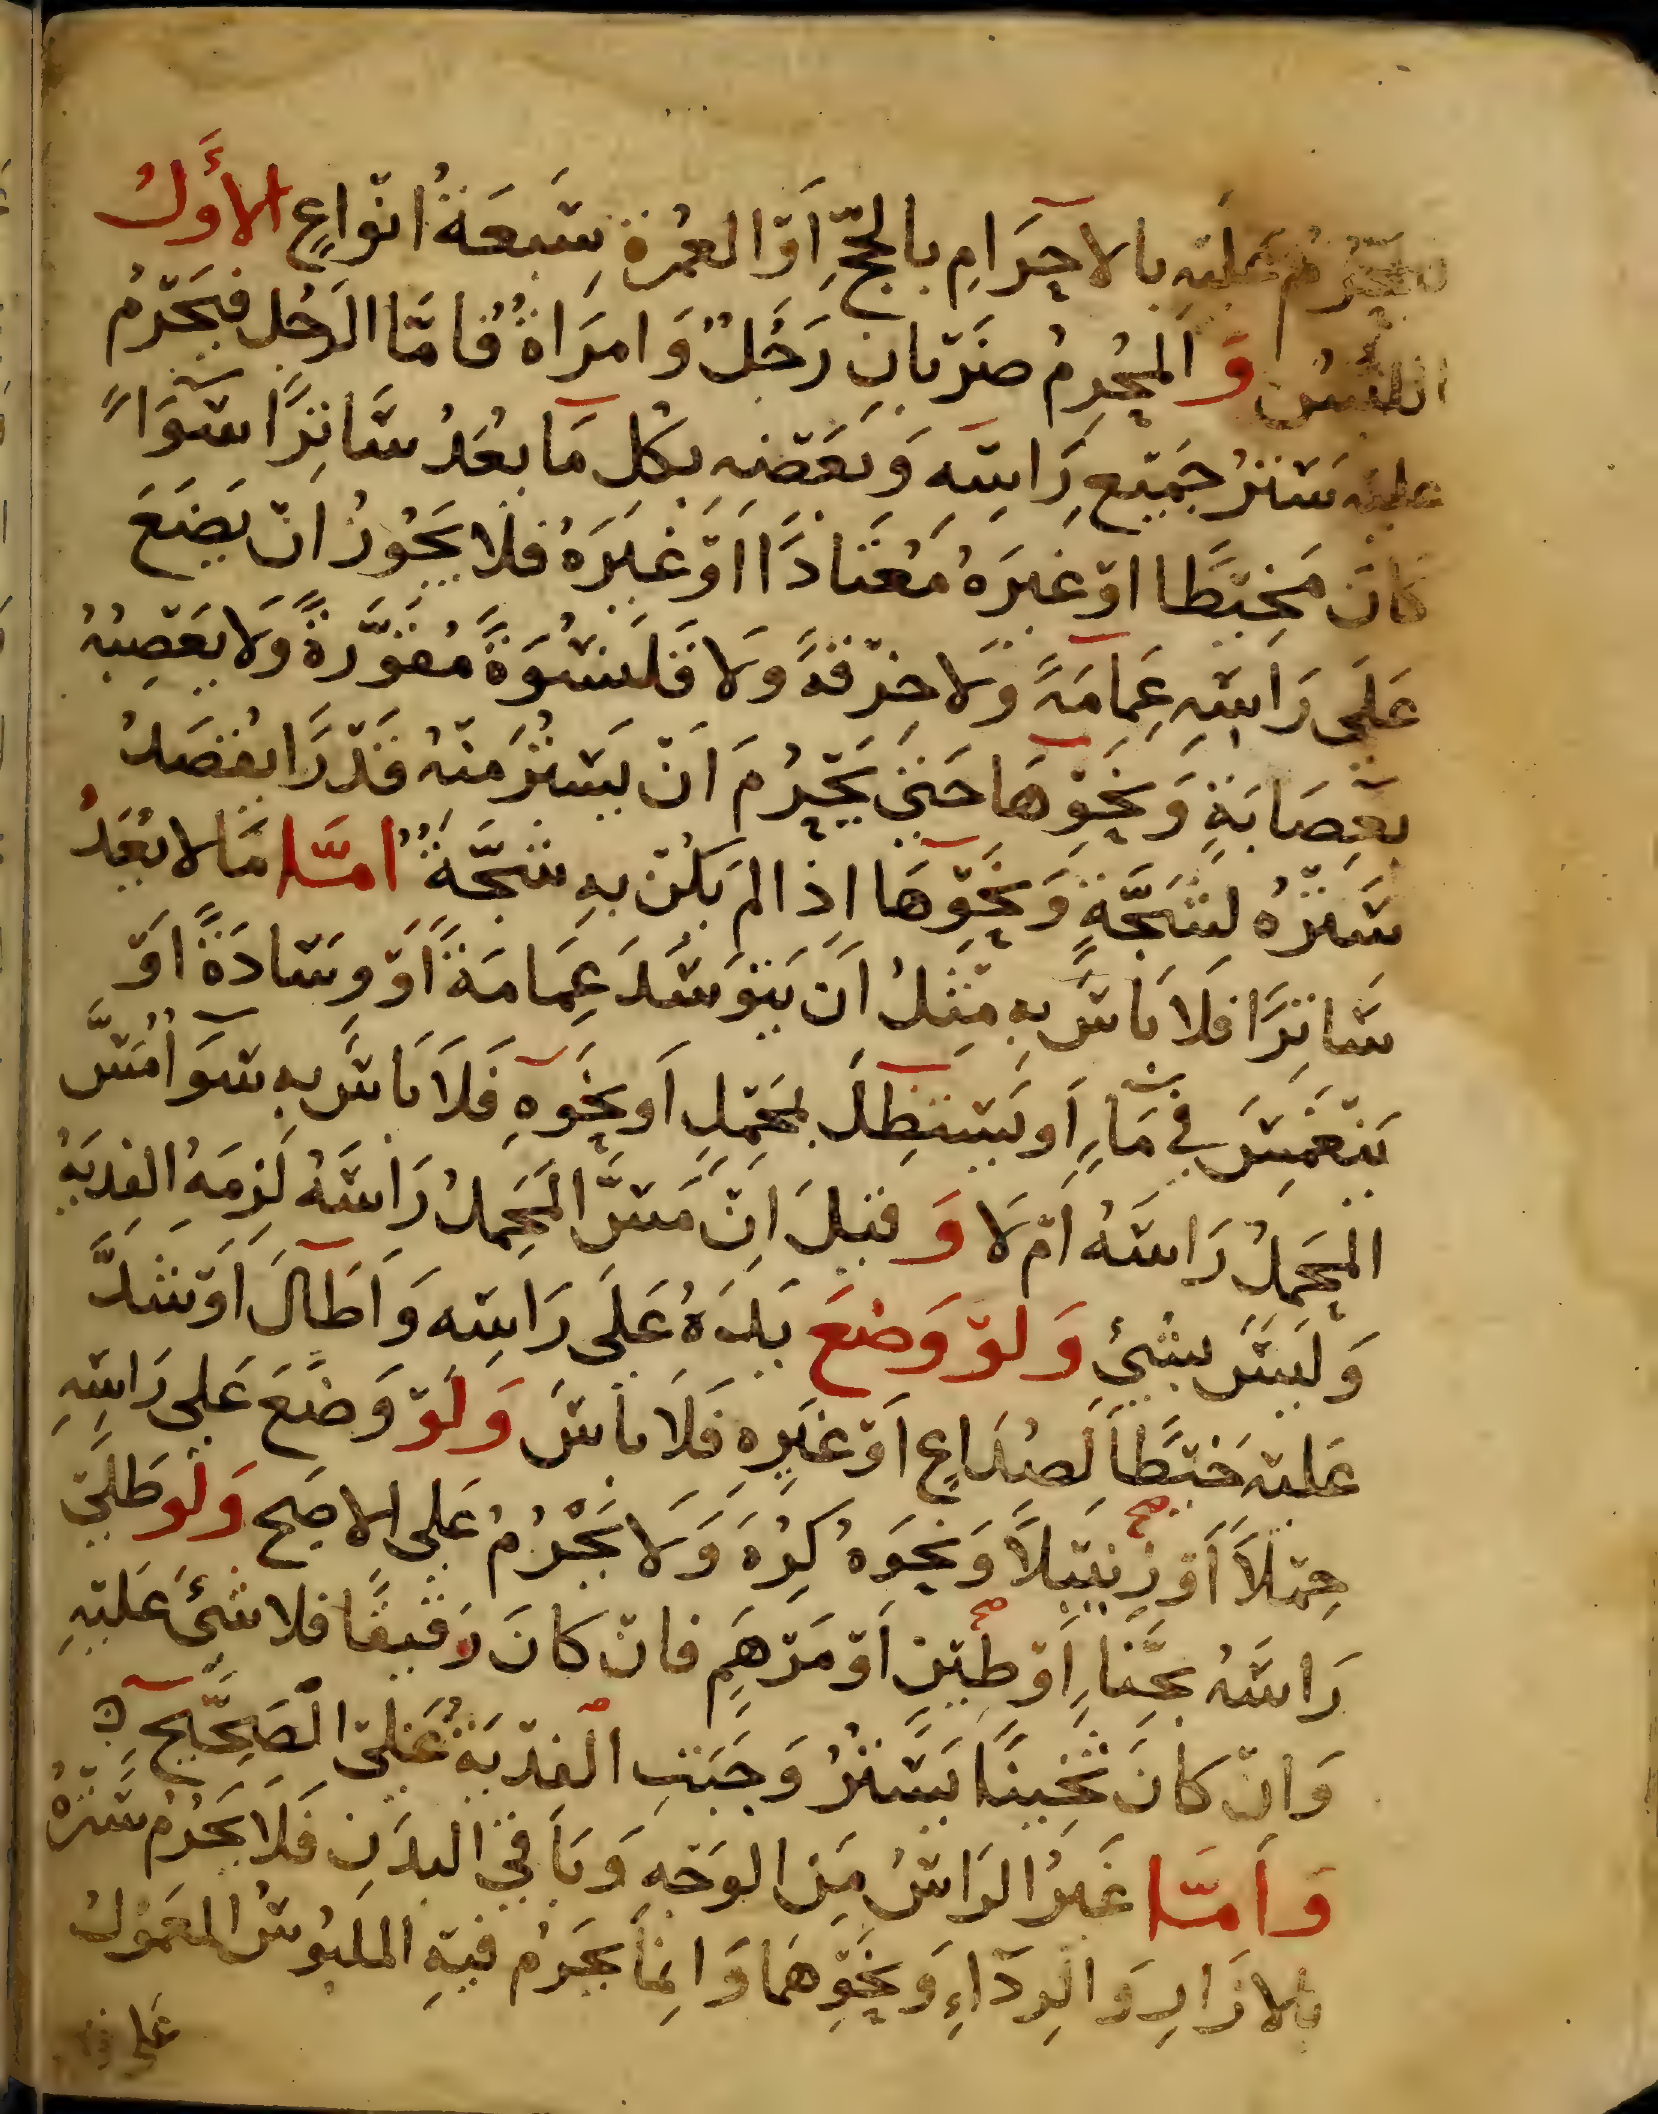 يحرم عليه بالاحرام بالحجّ أو العمرة سبعة أنواع الأول
اللبس والمحرم ضربان رجل وامرأة فأما الرجل فيحرم
عليه ستر جميع راسه وبعضه بكل ما يعد ساترا سوآء
كان مخيطا او غيره معتادا او غيره فلا يجوز ان يضع
على راسه عمامة ولا خرقة ولا قلنسوة مقورة ولا يعصبه
بعصابة ونحوها حتى يحرم ان يستر منه قدرا يقصد
ستره لشجة ونحوها اذا لم يكن به شجة امّا ما لا يعد
ساترا فلا باس به مثل ان يتوسد عمامة او وسادة او
ينغمس في ماء او يستظل بمحمل او نحوه فلا باس به سوآ مسّ
المحمل راسه ام لا وقيل ان مسّ المحمل راسه لزمه الفدية
وليس بشيء ولو وضع يده على راسه واطال او شدّ
عليه خيطا لصداع او غيره فلا باس ولو وضع على راسه
حملا او زنبيلا ونحوه كره ولا يحرم على الاصح ولو طلى
راسه بحناء او طين او مرهم فان كان رقيقا فلا شئ عليه
وان كان ثخينا يستر وجبت الفدية على الصحيح
وأمّا غير الراس من الوجه وباقي البدن فلا يحرم ستره
بالازار والرداء ونحوهما وانما يحرم فيه الملبوس المعمول
على